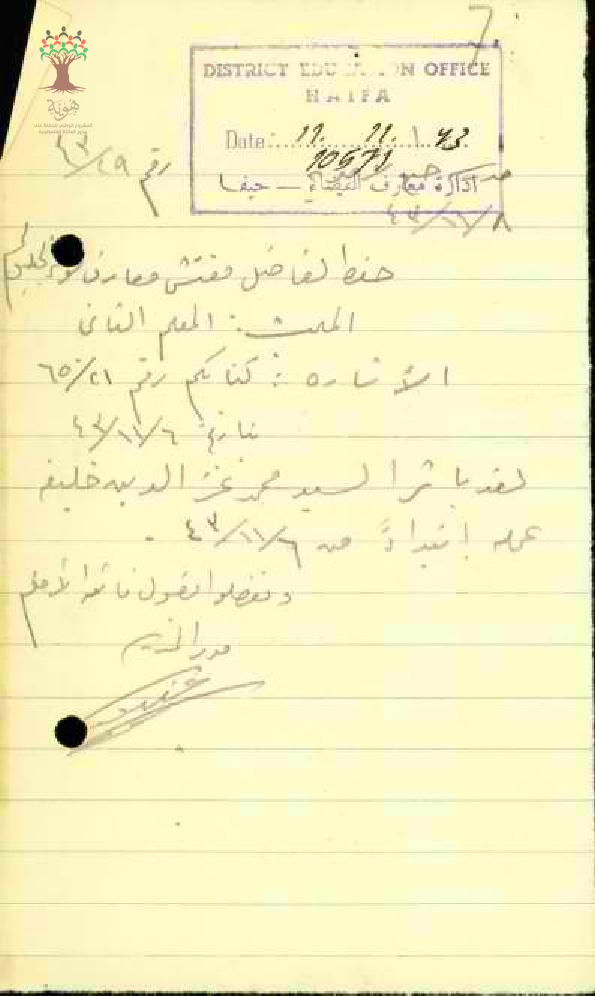 7
هوية
DISTRICT EDUCATION OFFICE
HAIFA
Date: 11. 11. 43
10571
ادارة معارف القضاء — حيفا
رقم ٤٣/٤٩
٤٣/١١/٨
حضرة الفاضل مفتش معارف لواء الجليل
المعلم الثاني
الأشارة : كتابكم رقم ٦٥/٢١
تاريخ ٤٣/١١/٦
لقد باشر السيد محمد عز الدين خليفه
عمله إبتداءً من ٤٣/١١/٦ .
وتفضلوا بقبول فائق الاحترام
مدير المدرسة